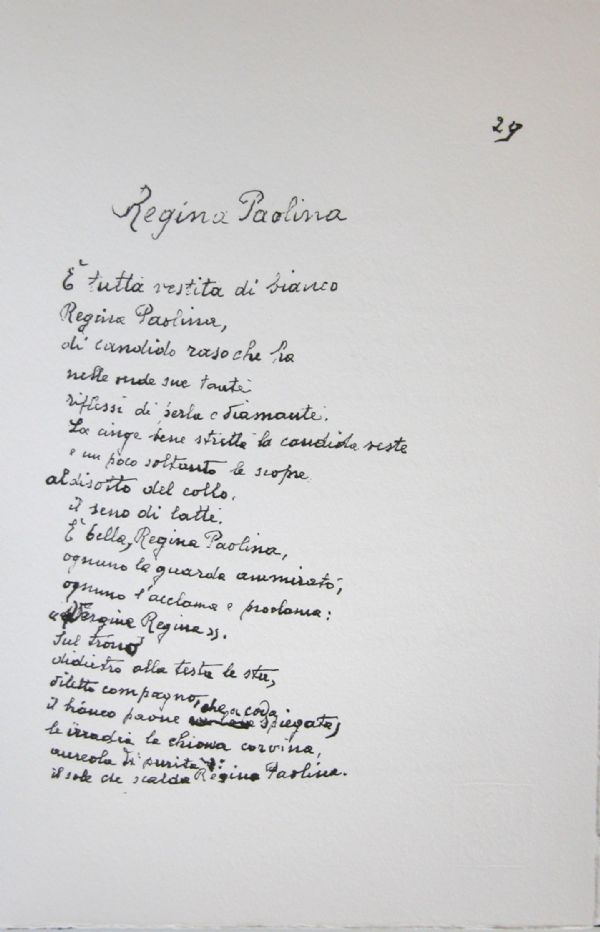 29
Regina Paolina
È tutta vestita di bianco
Regina Paolina,
di candido raso che ha
nelle onde sue tante
riflessi di perla e diamante.
La cinge bene stretta la candida veste
e un poco soltanto le scopre
al disotto del collo,
il seno di latte.
È bella, Regina Paolina,
ognuno la guarda ammirato,
ognuno l'acclama e proclama:
«Vergine Regina».
Sul trono
didietro alla testa le sta,
diletto compagno, che a coda
il bianco paone spiegata,
le irradia la chioma corvina,
aureola di purità:
il sole che scalda Regina Paolina.